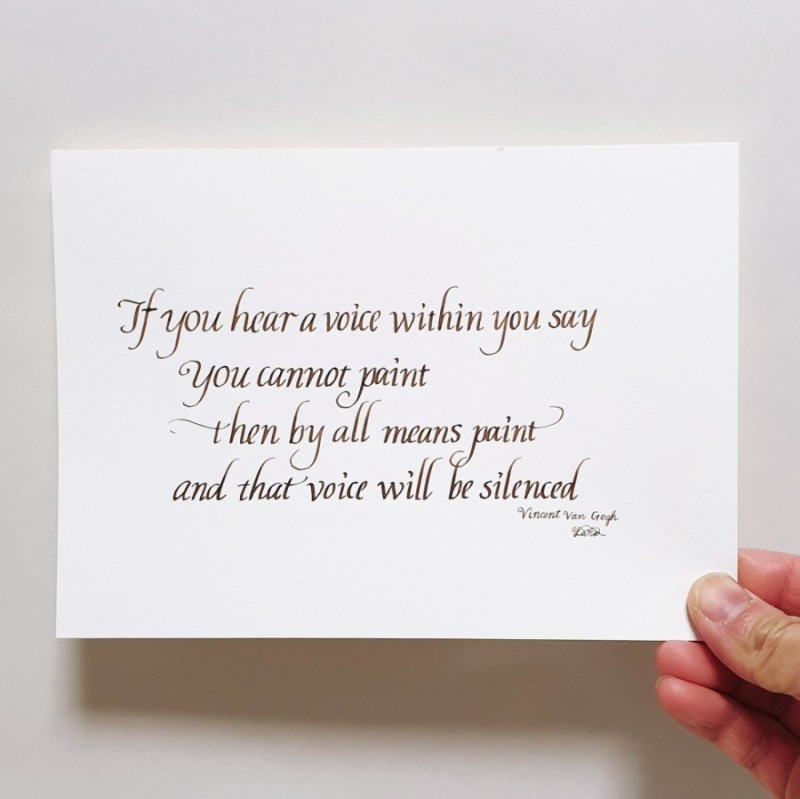 If you hear a voice within you say
You cannot paint
then by all means paint
and that voice will be silenced
Vincent Van Gogh